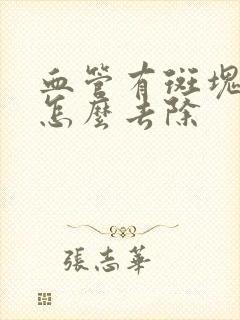 血管有斑塊
怎麼去除
張志華